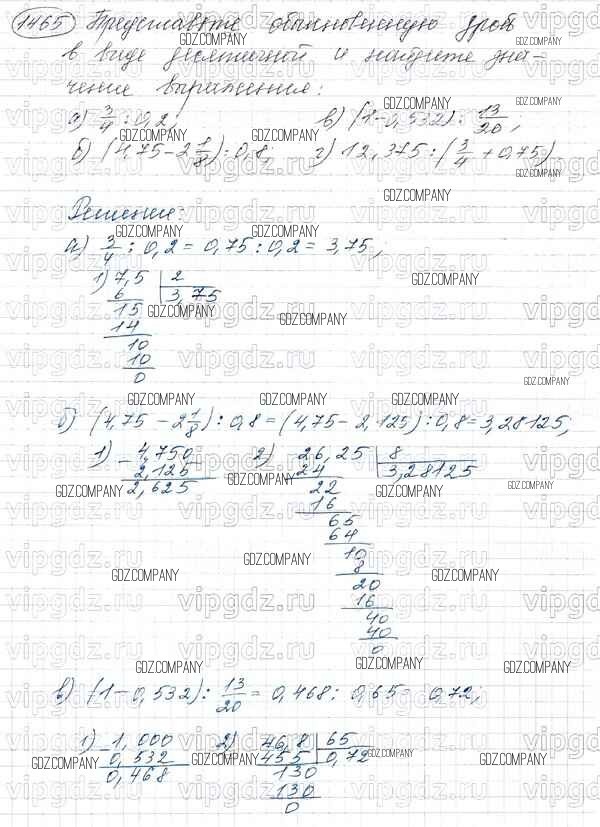 1465 Представьте обыкновенную дробь
в виде десятичной и найдите зна-
чение выражения:
а) 3/4 : 0,2; в) (1-0,532) : 13/20;
б) (4,75 - 2 1/8) : 0,8; г) 12,375 : (3/4 + 0,75).
Решение:
а) 3/4 : 0,2 = 0,75 : 0,2 = 3,75;
1) 7,5 | 2
6 3,75
15
14
10
10
0
б) (4,75 - 2 1/8) : 0,8 = (4,75 - 2,125) : 0,8 = 3,28125;
1) - 4,750 2) 26,25 | 8
2,125 24 3,28125
2,625 22
16
65
64
10
8
20
16
40
40
0
в) (1-0,532) : 13/20 = 0,468 : 0,65 = 0,72;
1) - 1,000 2) 46,8 | 65
0,532 455 0,72
0,468 130
130
0
GDZ.COMPANY
vipgdz.ru